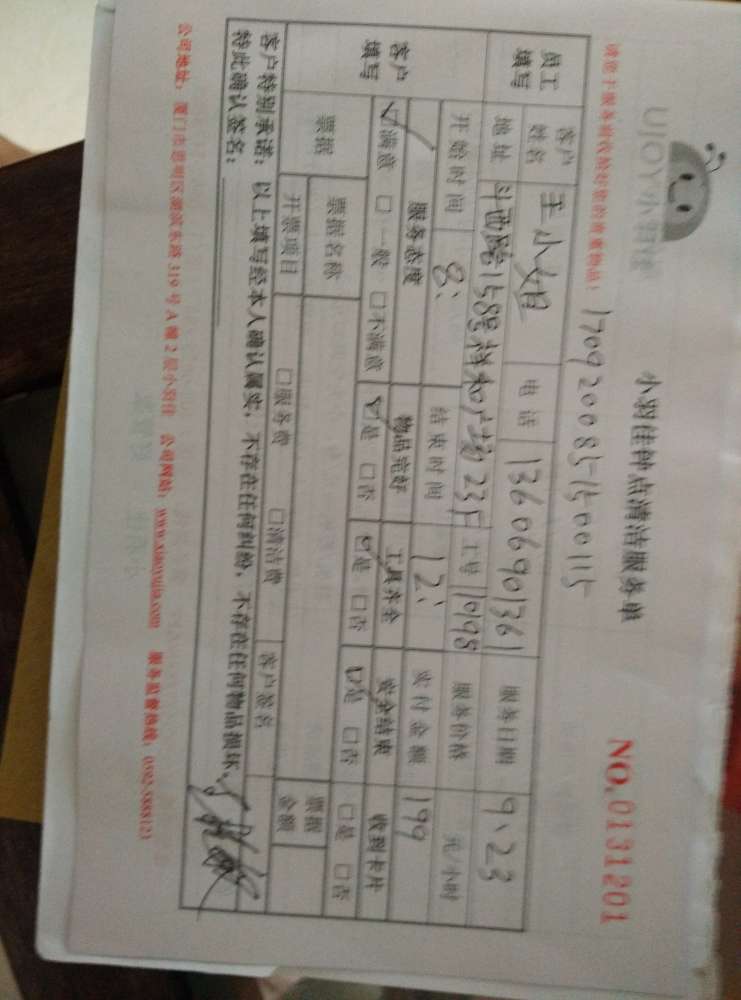 UJOY小羽佳
小羽佳钟点清洁服务单
NO.0131201
请您于服务前收拾好您的贵重物品！
1709200851500115
员工填写 客户姓名 王小姐 电话 13606901361 服务日期 9.23
地址 斗西路158号祥和广场23F 工号 10198 服务价格 元/小时
开始时间 8: 结束时间 12: 实付金额 199
客户填写 服务态度 物品完好 工具齐全 安全结束 收到卡片
☑满意 □一般 □不满意 ☑是 □否 ☑是 □否 ☑是 □否 □是 □否
票据 票据名称 票据金额
开票项目 □服务费 □清洁费 客户签名
客户特别承诺：以上填写经本人确认属实，不存在任何纠纷，不存在任何物品损坏。
特此确认签名：
公司地址：厦门市思明区湖滨东路319号A幢2层小羽佳 公司网站：www.xiaoyujia.com 服务监督热线：0592-5888123